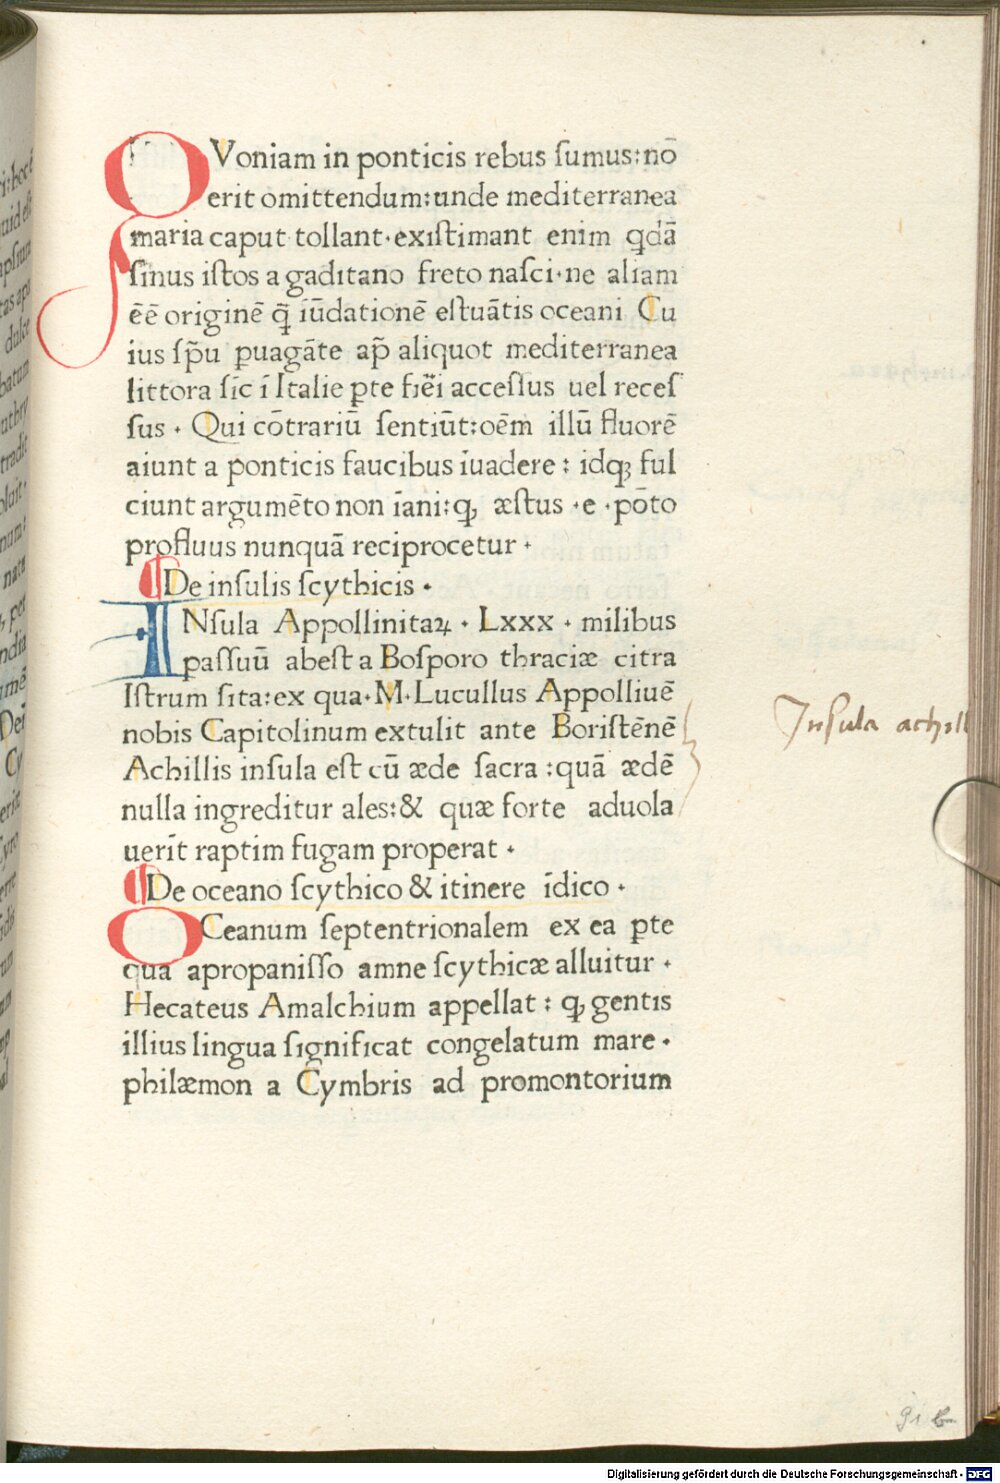 QVoniam in ponticis rebus ſumus:nō
erit omittendum:unde mediterranea
maria caput tollant·exiſtimant enim qdā
ſinus iſtos a gaditano freto naſci·ne aliam
ēē originē q̄ iūdationē eſtuātis oceani Cu
ius ſp̄u ꝑuagāte ap̄ aliquot mediterranea
littora ſic ī Italie ꝑte fiēi acceſſus uel receſ
ſus · Qui cōtrariū ſentiūt:oēm illū fluorē
aiunt a ponticis faucibus īuadere : idqꝫ ful
ciunt argumēto non īani:qꝫ æſtus ·e ·pōto
profluus nunquā reciprocetur ·
¶De inſulis ſcythicis ·
INſula Appollinitaꝝ · Lxxx · milibus
paſſuū abeſt a Boſporo thraciæ citra
Iſtrum ſita:ex qua·M·Lucullus Appolliuē
nobis Capitolinum extulit ante Boriſtēnē
Achillis inſula eſt cū æde ſacra :quā ædē
nulla ingreditur ales:& quæ forte aduola
uerīt raptim fugam properat ·
Inſula achill
¶De oceano ſcythico & itinere īdico ·
OCeanum ſeptentrionalem ex ea ꝑte
qua apropaniſſo amne ſcythicæ alluitur ·
Hecateus Amalchium appellat : qꝫ gentis
illius lingua ſignificat congelatum mare ·
philæmon a Cymbris ad promontorium
91
Digitalisierung gefördert durch die Deutsche Forschungsgemeinschaft · DFG